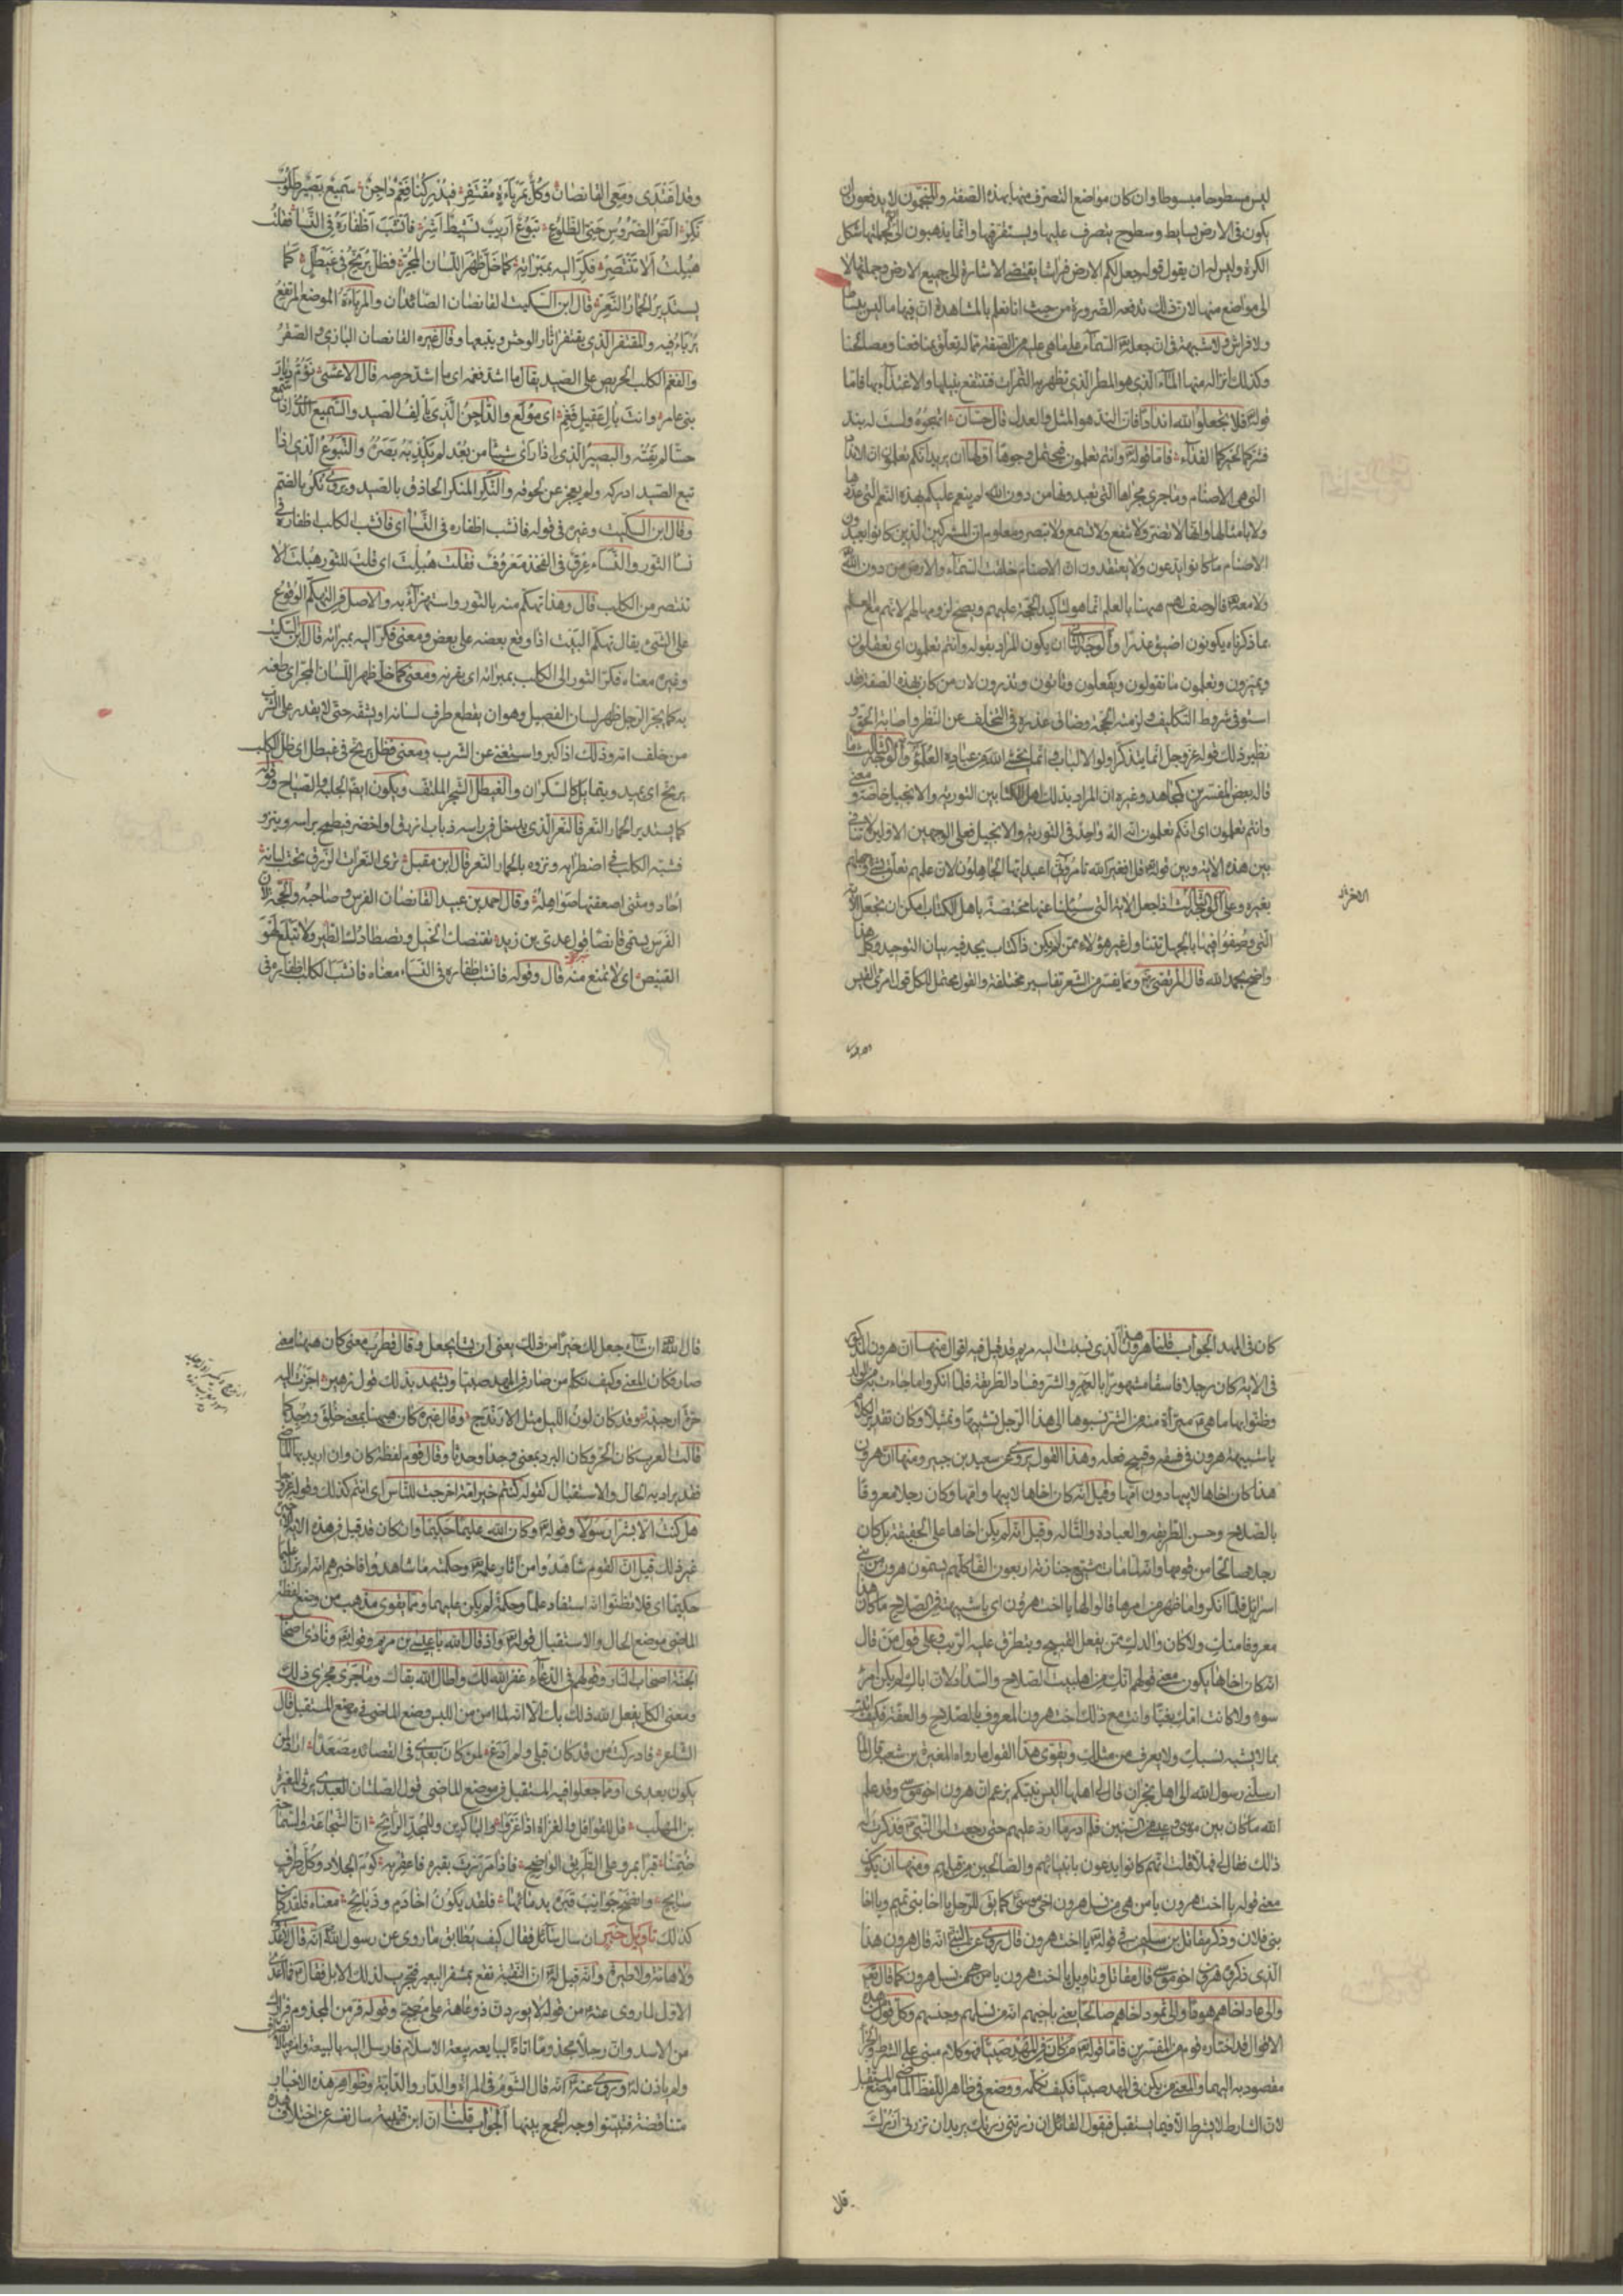 ليس مسطوحا مبسوطا وان كان مواضع التصرف منها بهذه الصفة والمنجمون لا يدفعون ان
يكون فى الارض بسايط وسطوح يتصرف عليها ويستقر فيها وانما يذهبون الى ان جملتها شكل
الكرة وليس له ان يقول قوله جعل لكم الارض فراشا يقتضى الاشارة الى جميع الارض وجملتها لا
الى مواضع منها لان ذلك تدفعه الضرورة من حيث انا نعلم بالمشاهدة ان فيها ما ليس ببساط
ولا فراش ولا شبهة فى ان جعله السماء على ما هى عليه من الصفة مما له تعلق بمنافعنا ومصالحنا
وكذلك انزاله منها الماء الذى هو المطر الذى تظهر به الثمرات فننتفع بنيلها والاغتذاء بها فاما
قوله فلا تجعلوا لله اندادا فان الند هو المثل والعدل قال حسان اتهجوه ولست له بند
فشركما لخيركما الفداء فاما قوله وانتم تعلمون فيحتمل وجوها اولها ان يريد انكم تعلمون ان الانداد
التى هى الاصنام وما جرى مجراها التى تعبدونها من دون الله لم ينعم عليكم بهذه النعم التى عددها
ولا بامثالها وانها لا تضر ولا تنفع ولا تسمع ولا تبصر ومعلوم ان المشركين الذين كانوا يعبدون
الاصنام ما كانوا يدعون ولا يعتقدون ان الاصنام خلقت السماء والارض من دون الله
ولا معه فالوصف لهم ههنا بالعلم انما هو لتاكيد الحجة عليهم ويصح لزومها لهم لانهم مع العلم
بما ذكرناه يكونون اضيق عذرا والوجه الثانى ان يكون المراد بقوله وانتم تعلمون اى تعقلون
ويميزون وتعلمون ما تقولون وتفعلون وتاتون وتذرون لان من كان بهذه الصفة فقد
استوفى شروط التكليف ولزمته الحجة وضاق عذره فى التخلف عن النظر واصابة الحق و
نظير ذلك قوله عز وجل انما يتذكر اولوا الالباب و انما يخشى الله من عباده العلمؤ والوجه الثالث ما
قاله بعض المفسرين كمجاهد وغيره ان المراد بذلك اهل الكتابين التورية والانجيل خاصة ومعنى
وانتم تعلمون اى انكم تعلمون انه اله واحد فى التورية والانجيل فعلى الوجهين الاولين لا تنافى
بين هذه الاية وبين قوله قل افغير الله تامرونى اعبد ايها الجاهلون لان علمهم تعلق بشئ وجهلهم
بغيره وعلى الوجه الثالث اذا جعل الاية التى سئلنا عنها مختصة باهل الكتاب امكن ان نجعل الاية
التى وصفوا فيها بالجهل تتناول غير هؤلاء ممن لم يكن ذا كتاب يجد فيه بيان التوحيد وكل هذا
واضح بحمد الله قال المرتضى ومما يفسر من الشعر تفاسير مختلفة والقول محتمل للكل قول امرئ القيس
وقد اغتدى ومعى القانصان وكل بمرباءة مقتفر فيدركنا فغم داجن سميع بصير طلوب
نكر الص الضروس حنى الظلوع تبوع اريب نشيط اشر فانشب اظفاره فى النسا فقلت
هبلت الا تنتصر فكر اليه بمبراته كما خل ظهر اللسان المجر فظل يرنح فى غيطل كما
يستدير الحمار النعر قال ابن السكيت القانصان الصائدان والمرباءة الموضع المرتفع
يربا فيه والمقتفر الذى يقتفر اثار الوحش ويتبعها وقال غيره القانصان البازى والصقر
والفغم الكلب الحريص على الصيد يقال ما اشد فغمه اى ما اشد حرصه قال الاعشى نؤم ديار
بنى عامر وانت بال عقيل فغم اى مولع والداجن الذى يالف الصيد والسميع الذى اذا سمع
حسا لم يفته والبصير الذى اذا راى شيئا من بعد لم يكذبه بصره والتبوع الذى اذا
تبع الصيد ادركه ولم يعجز عن لحوقه والنكر المنكر الحاذق بالصيد ويروى نكر بالضم
وقال ابن السكيت وغيره فى قوله فانشب اظفاره فى النسا اى فانشب الكلب اظفاره فى
نسا الثور والنساء عرق فى الفخذ معروف فقلت هبلت اى قلت للثور هبلت الا
تنتصر من الكلب قال وهذا تهكم منه بالثور واستهزاء به والاصل فى التهكم الوقوع
على الشئ يقال تهكم البيت اذا وقع بعضه على بعض ومعنى فكر اليه بمبراته قال ابن السكيت
وغيره معناه فكر الثور الى الكلب بمبراته اى بقرنه ومعنى كما خل ظهر اللسان المجر اى طعنه
به كما يجر الرجل ظهر لسان الفصيل وهو ان يقطع طرف لسانه او يشقه حتى لا يقدر على الشرب
من خلف امه وذلك اذا كبر واستغنى عن الشرب ومعنى فظل يرنح فى غيطل اى ظل الكلب
يرنح اى يميد ويتمايل كالسكران والغيطل الشجر الملتف ويكون ايضا الجلبة والصياح وقوله
كما يستدير الحمار النعر فالنعر الذى يدخل فى راسه ذباب ازرق او اخضر فيطمح براسه وينزو
فشبه الكلب فى اضطرابه ونزوه بالحمار النعر قال ابن مقبل ترى النعرات الزرق تحت لبانه
احاد ومثنى اصعقتها صواهله وقال احمد بن عبيد القانصان الفرس وصاحبه والحجة لان
الفرس يسمى قانصا قول عدى بن زيد تقنصك الخيل وتصطادك الطير ولا تبلغ لهو
القنيص اى لا تمنع منه قال وقوله فانشب اظفاره فى النساء معناه فانشب الكلب اظفاره فى
كان فى المهد الجواب قلنا هرون هذا الذى نسبت اليه مريم قد قيل فيه اقوال منها ان هرون المذكور
فى الاية كان رجلا فاسقا مشهورا بالعهر والشر وفساد الطريقة فلما انكروا ما جاءت به من الولد
وظنوا بها ما هى مبرأة منه من الشر نسبوها الى هذا الرجل تشبيها وتمثيلا وكان تقدير الكلام
يا شبيهة هرون فى فسقه وقبح فعله وهذا القول يروى عن سعيد بن جبير ومنها ان هرون
هذا كان اخاها لابيها دون امها وقيل انه كان اخاها لابيها وامها وكان رجلا معروفا
بالصلاح وحسن الطريقة والعبادة والتاله وقيل انه لم يكن اخاها على الحقيقة بل كان
رجلا صالحا من قومها وانه لما مات شيع جنازته اربعون الفا كلهم يسمون هرون من بنى
اسرائيل فلما انكروا ما ظهر من امرها قالوا لها يا اخت هرون اى يا شبيهته فى الصلاح ما كان هذا
معروفا منك ولا كان والدك ممن يفعل القبيح ويتطرق عليه الريب وعلى قول من قال
انه كان اخاها يكون معنى قولهم انك من اهل بيت الصلاح والسداد لان اباك لم يكن امرأ
سوء ولا كانت امك بغيا وانت مع ذلك اخت هرون المعروف بالصلاح والعفة فكيف اتيت
بما لا يشبه نسبك ولا يعرف من مثلك ويقوى هذا القول ما رواه المغيرة بن شعبة قال لما
ارسلنى رسول الله الى اهل نجران قال لى اهلها اليس نبيكم يزعم ان هرون اخو موسى وقد علم
الله ما كان بين موسى وعيسى من السنين فلم ادر ما ارد عليهم حتى رجعت الى النبى فذكرت له
ذلك فقال لى فهلا قلت انهم كانوا يدعون بانبيائهم والصالحين من قبلهم ومنها ان يكون
معنى قوله يا اخت هرون يا من هى من نسل هرون اخى موسى كما يق للرجل يا اخا بنى تميم ويا اخا
بنى فلان وذكر مقاتل بن سليمن فى قوله يا اخت هرون قال روى عن النبى انه قال هرون هذا
الذى ذكروه هو هرون اخو موسى قال مقاتل وتاويل يا اخت هرون يا من هى من نسل هرون كما قال تعالى
والى عاد اخاهم هودا والى ثمود اخاهم صالحا يعنى باخيهم انه من نسلهم وجنسهم وكل قول من هذه
الاقوال قد اختاره قوم من المفسرين فاما قوله من كان فى المهد صبيا فهو كلام مبنى على الشرط والجزاء
مقصود به اليهما والمعنى من يكن فى المهد صبيا فكيف نكلمه ووضع فى ظاهر اللفظ الماضى موضع المستقبل
لان الشارط لا يشرط الا فيما يستقبل فيقول القائل ان زرتنى زرتك يريد ان تزرنى ازرك
قلا
قال الله ان شاء جعل لك خيرا من ذلك يعنى ان يشا يجعل وقال قطرب معنى كان ههنا معنى
صار فكان المعنى وكيف نكلم من صار فى المهد صبيا ويشهد بذلك قول زهير اجزت اليه
حرة ارحبية وقد كان لون الليل مثل الارندج وقال غيره كان ههنا بمعنى خلق ووجد كما
قالت العرب كان الحر وكان البرد بمعنى وجدا وحدثا وقال قوم لفظة كان وان اريد بها الماضى
فقد يراد به الحال والاستقبال كقوله كنتم خير امة اخرجت للناس اى انتم كذلك وقوله عز وجل
هل كنت الا بشرا رسولا وقوله وكان الله عليما حكيما وان كان قد قيل فى هذه الاية الاخيرة
غير ذلك قيل ان القوم شاهدوا من اثار علمه وحكمته ما شاهدوا فاخبرهم انه لم يزل عليما
حكيما اى فلا تظنوا انه استفاد علما وحكمة لم يكن عليهما ومما يقوى مذهب من وضع لفظة
الماضى موضع الحال والاستقبال قوله واذ قال الله يا عيسى بن مريم وقوله ونادى اصحاب
الجنة اصحاب النار وقولهم فى الدعاء غفر الله لك واطال الله بقاك وما جرى مجرى ذلك
ومعنى الكل يفعل الله ذلك بك الا انه لما امن من اللبس وضع الماضى فى موضع المستقبل قال
الشاعر فادركت من قد كان قبلى ولم ادع لمن كان بعدى فى القصائد مصعدا اراد لمن
يكون بعدى ومما جعلوا فيه المستقبل فى موضع الماضى قول الصلتان العبدى يرثى المغيرة
بن المهلب قل للقوافل والغزاة اذا غزوا والباكرين وللمجد الرايح ان الشجاعة والسماحة
ضمنا قبرا بمرو على الطريق الواضح فاذا مررت بقبره فاعقر به كوم الجلاد وكل طرف
سابح وانضح جوانب قبره بدمائها فلقد يكون اخا دم وذبايح معناه فلقد كان
كذلك تاويل خبر ان سال سائل فقال كيف يطابق ما روى عن رسول الله انه قال لا عدوى
ولا هامة ولا طيرة وانه قيل له ان النقبة تقع بمشفر البعير فتجرب لذلك الابل فقال فما اعدى
الاول لما روى عنه من قوله لا يوردن ذو عاهة على مصح وقوله فر من المجذوم فرارك
من الاسد وان رجلا مجذوما اتاه ليبايعه بيعة الاسلام فارسل اليه بالبيعة وامره بالانصراف
ولم ياذن له وروى عنه انه قال الشؤم فى المراة والدار والدابة وظواهر هذه الاخبار
متناقضة فبينوا وجه الجمع بينها الجواب قلنا ان ابن قتيبة سال نفسه عن اختلاف هذه